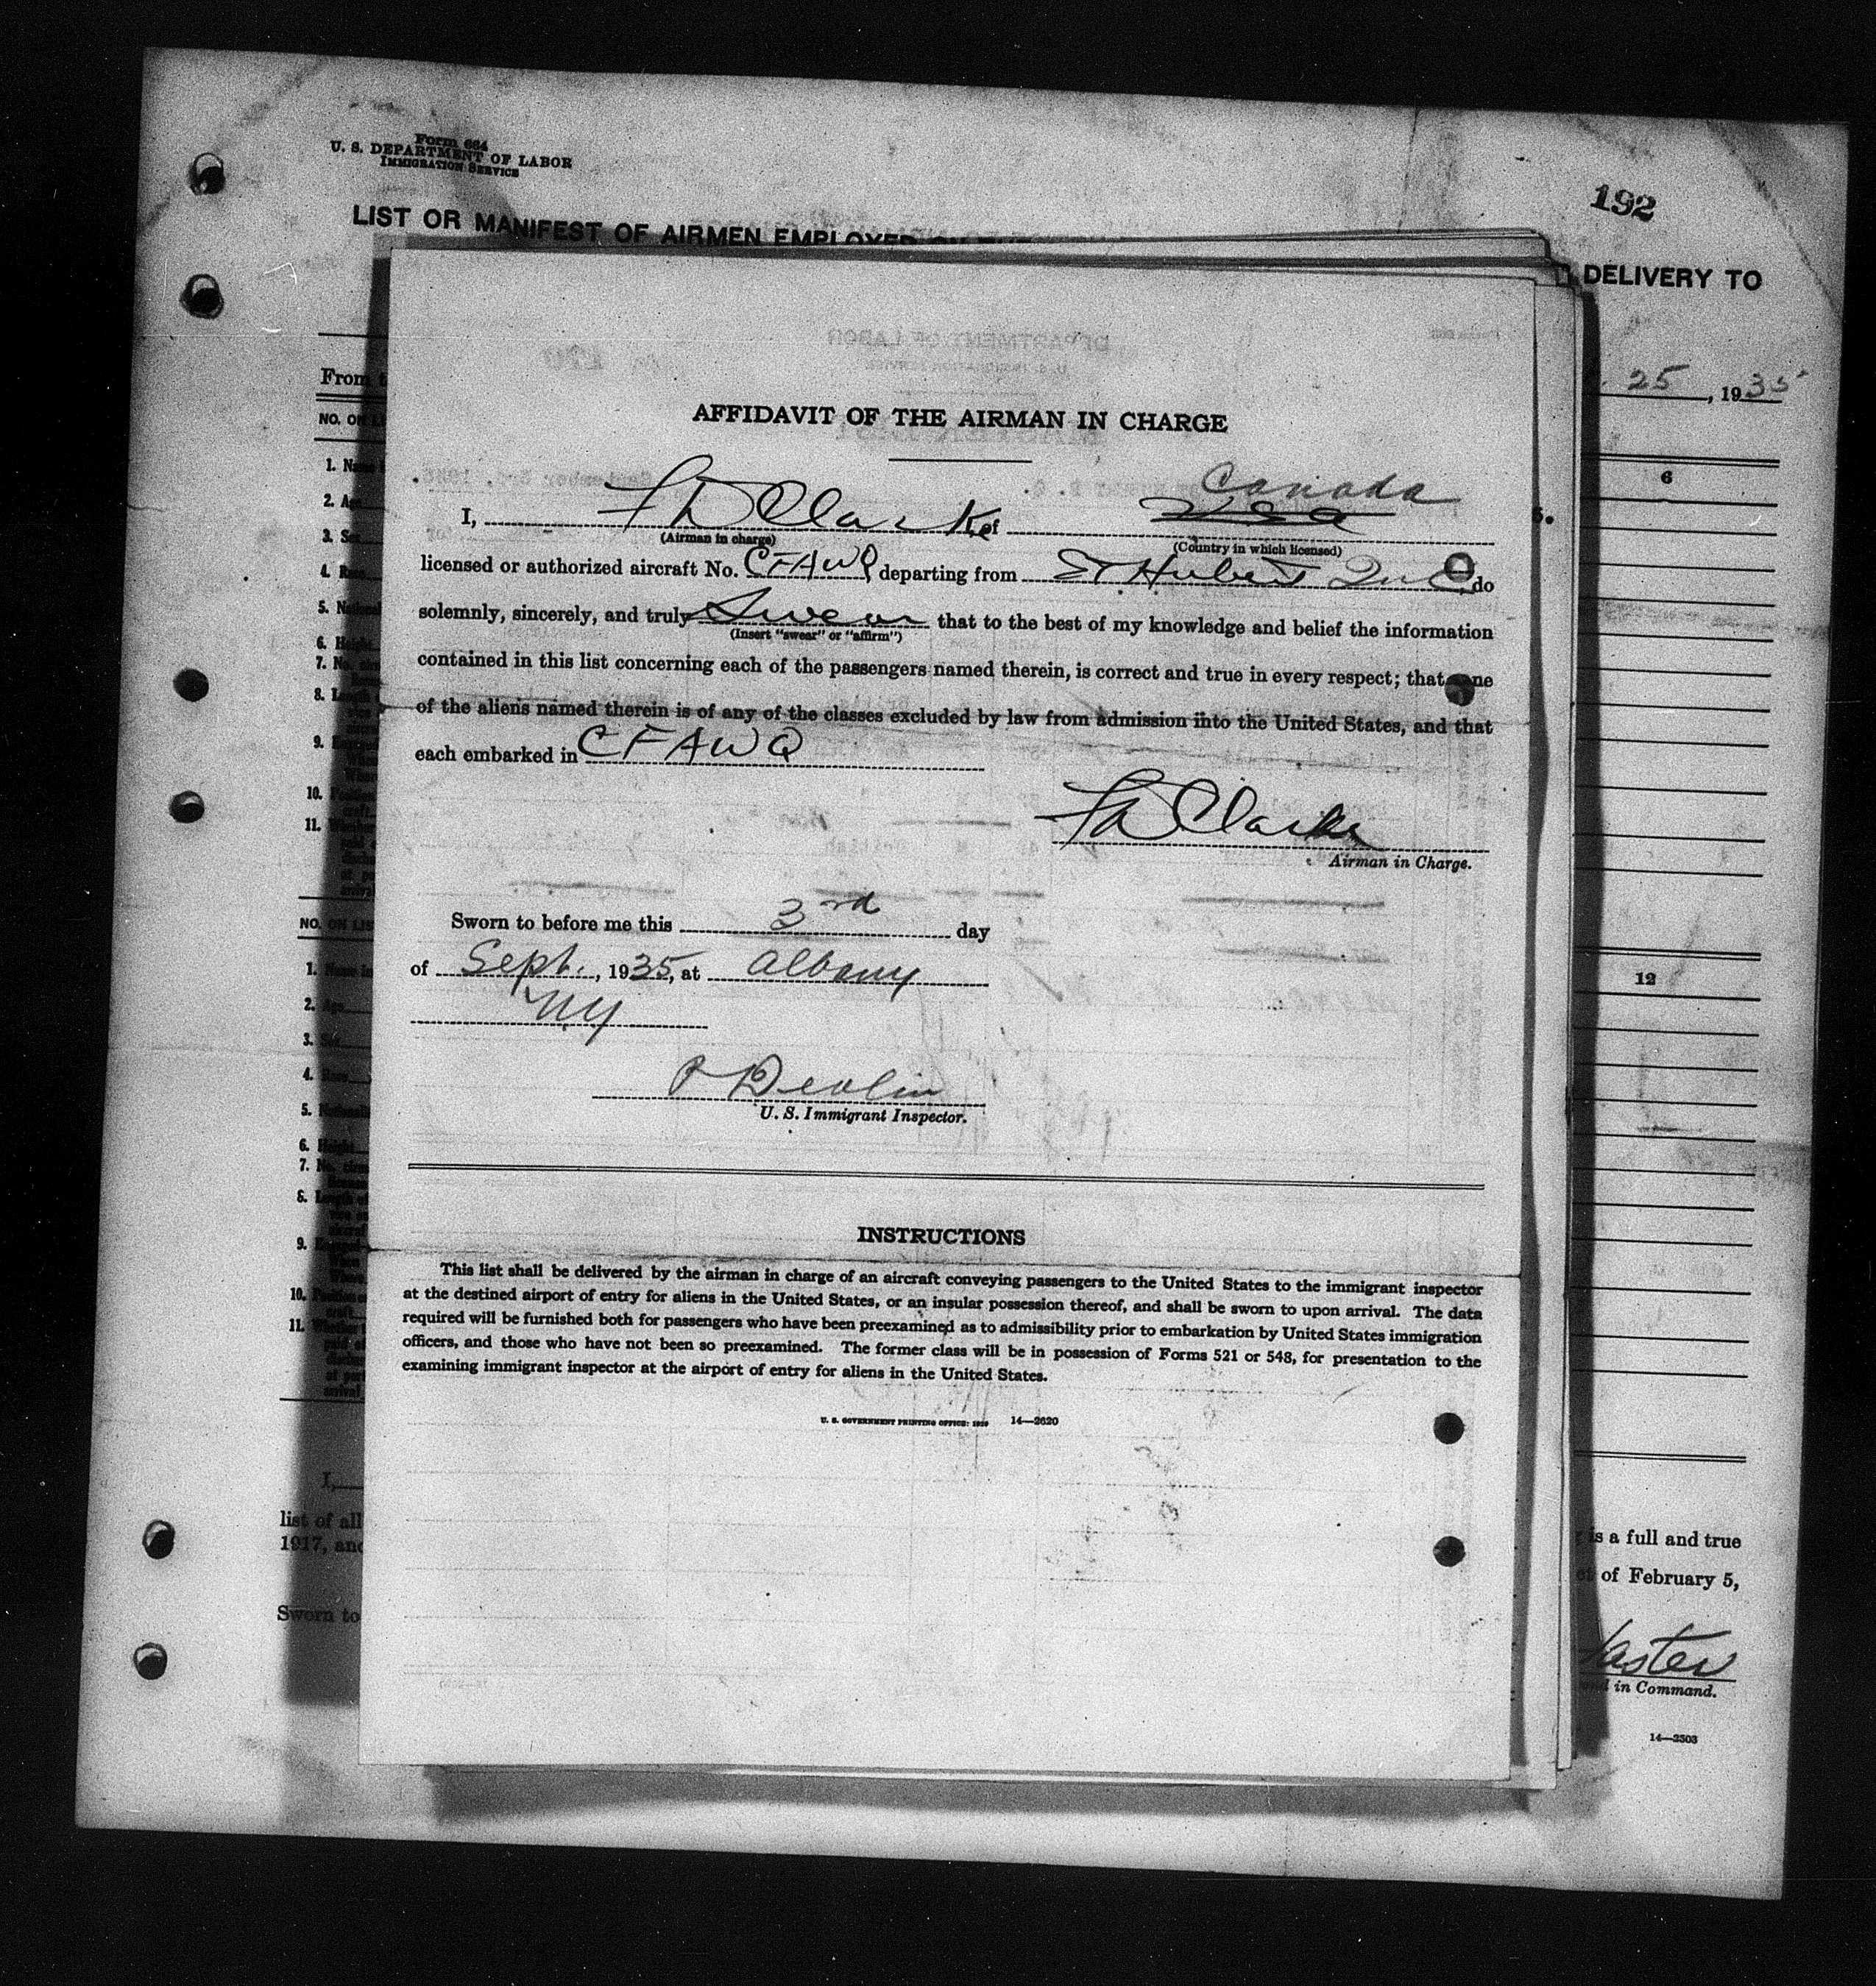 Form 664
U. S. DEPARTMENT OF LABOR
IMMIGRATION SERVICE
192
LIST OR MANIFEST OF AIRMEN EMPLOYED
DELIVERY TO
From
25, 1935
NO. ON
6
AFFIDAVIT OF THE AIRMAN IN CHARGE
Canada
I, Clarke of USA
(Airman in charge) (Country in which licensed)
licensed or authorized aircraft No. CFAWQ departing from St Hubert Que, do
solemnly, sincerely, and truly Swear that to the best of my knowledge and belief the information
(Insert "swear" or "affirm")
contained in this list concerning each of the passengers named therein, is correct and true in every respect; that none
of the aliens named therein is of any of the classes excluded by law from admission into the United States, and that
each embarked in CFAWQ
Clarke
Airman in Charge.
Sworn to before me this 3rd day
of Sept., 1935, at Albany
NY
P Devlin
U. S. Immigrant Inspector.
INSTRUCTIONS
This list shall be delivered by the airman in charge of an aircraft conveying passengers to the United States to the immigrant inspector
at the destined airport of entry for aliens in the United States, or an insular possession thereof, and shall be sworn to upon arrival. The data
required will be furnished both for passengers who have been preexamined as to admissibility prior to embarkation by United States immigration
officers, and those who have not been so preexamined. The former class will be in possession of Forms 521 or 548, for presentation to the
examining immigrant inspector at the airport of entry for aliens in the United States.
U. S. GOVERNMENT PRINTING OFFICE: 1929 14—2620
12
I,
list of all
1917, and
Sworn to
is a full and true
of February 5,
in Command.
14—2503